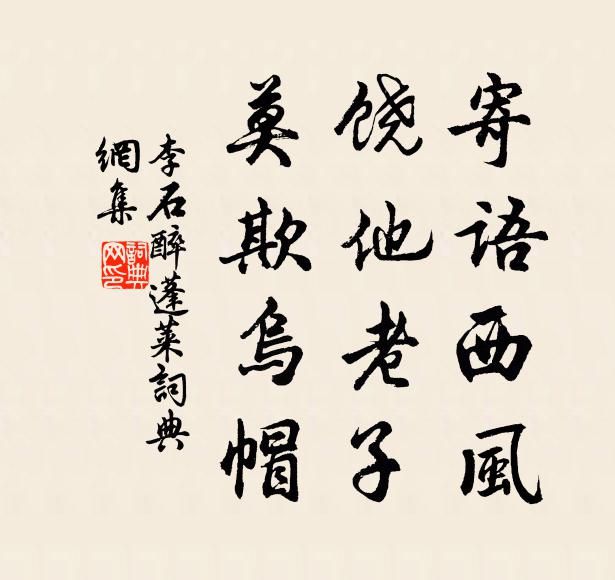 寄语西風
饶他老子
莫欺烏帽
李石醉蓬莱詞典
網集
詞典
网印